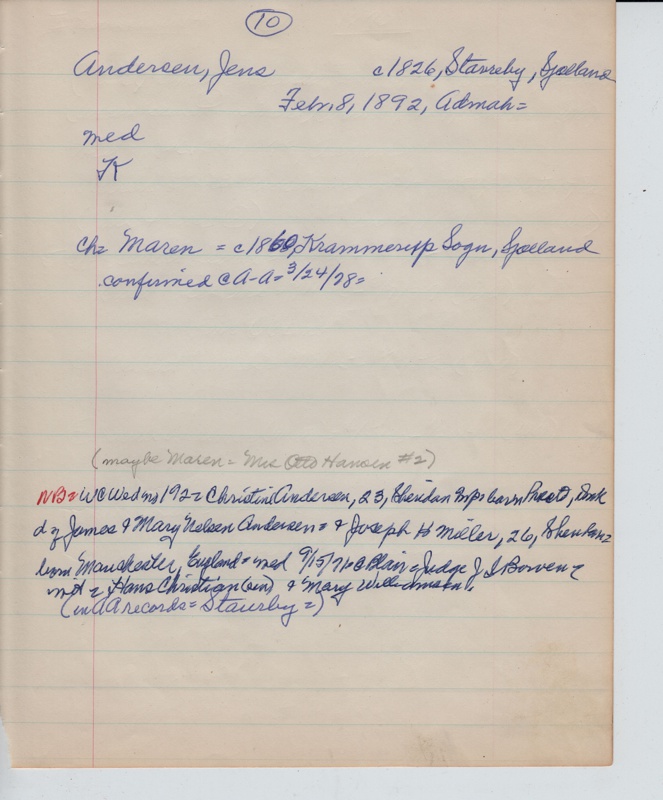 10
Andersen, Jens c1826, Stavreby, Sjoelland
Feb. 8, 1892, Admah=
med
K
Ch= Maren = c1860, Krammesupp Sogn, Sjoelland
confirmed @ A-A= 3/24/78=
(maybe Maren = Mrs Otto Hansen #2)
NB= WC Wed 192= Christine Andersen, 23, Sheridan born Denk
d of James & Mary Nelsen Andersen= & Joseph H Miller, 26, Sheridan=
born Manchester, England= med 9/15/71 @ Blair= Judge J I Bowen=
wit = Hans Christian (sen) & Mary Williamsen.
(in AA records= Staurby=)